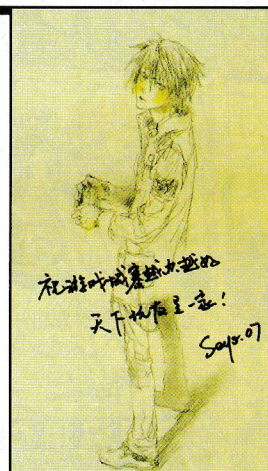 祝游戏城寨越办越好
天下优友是一家!
Sayo.07